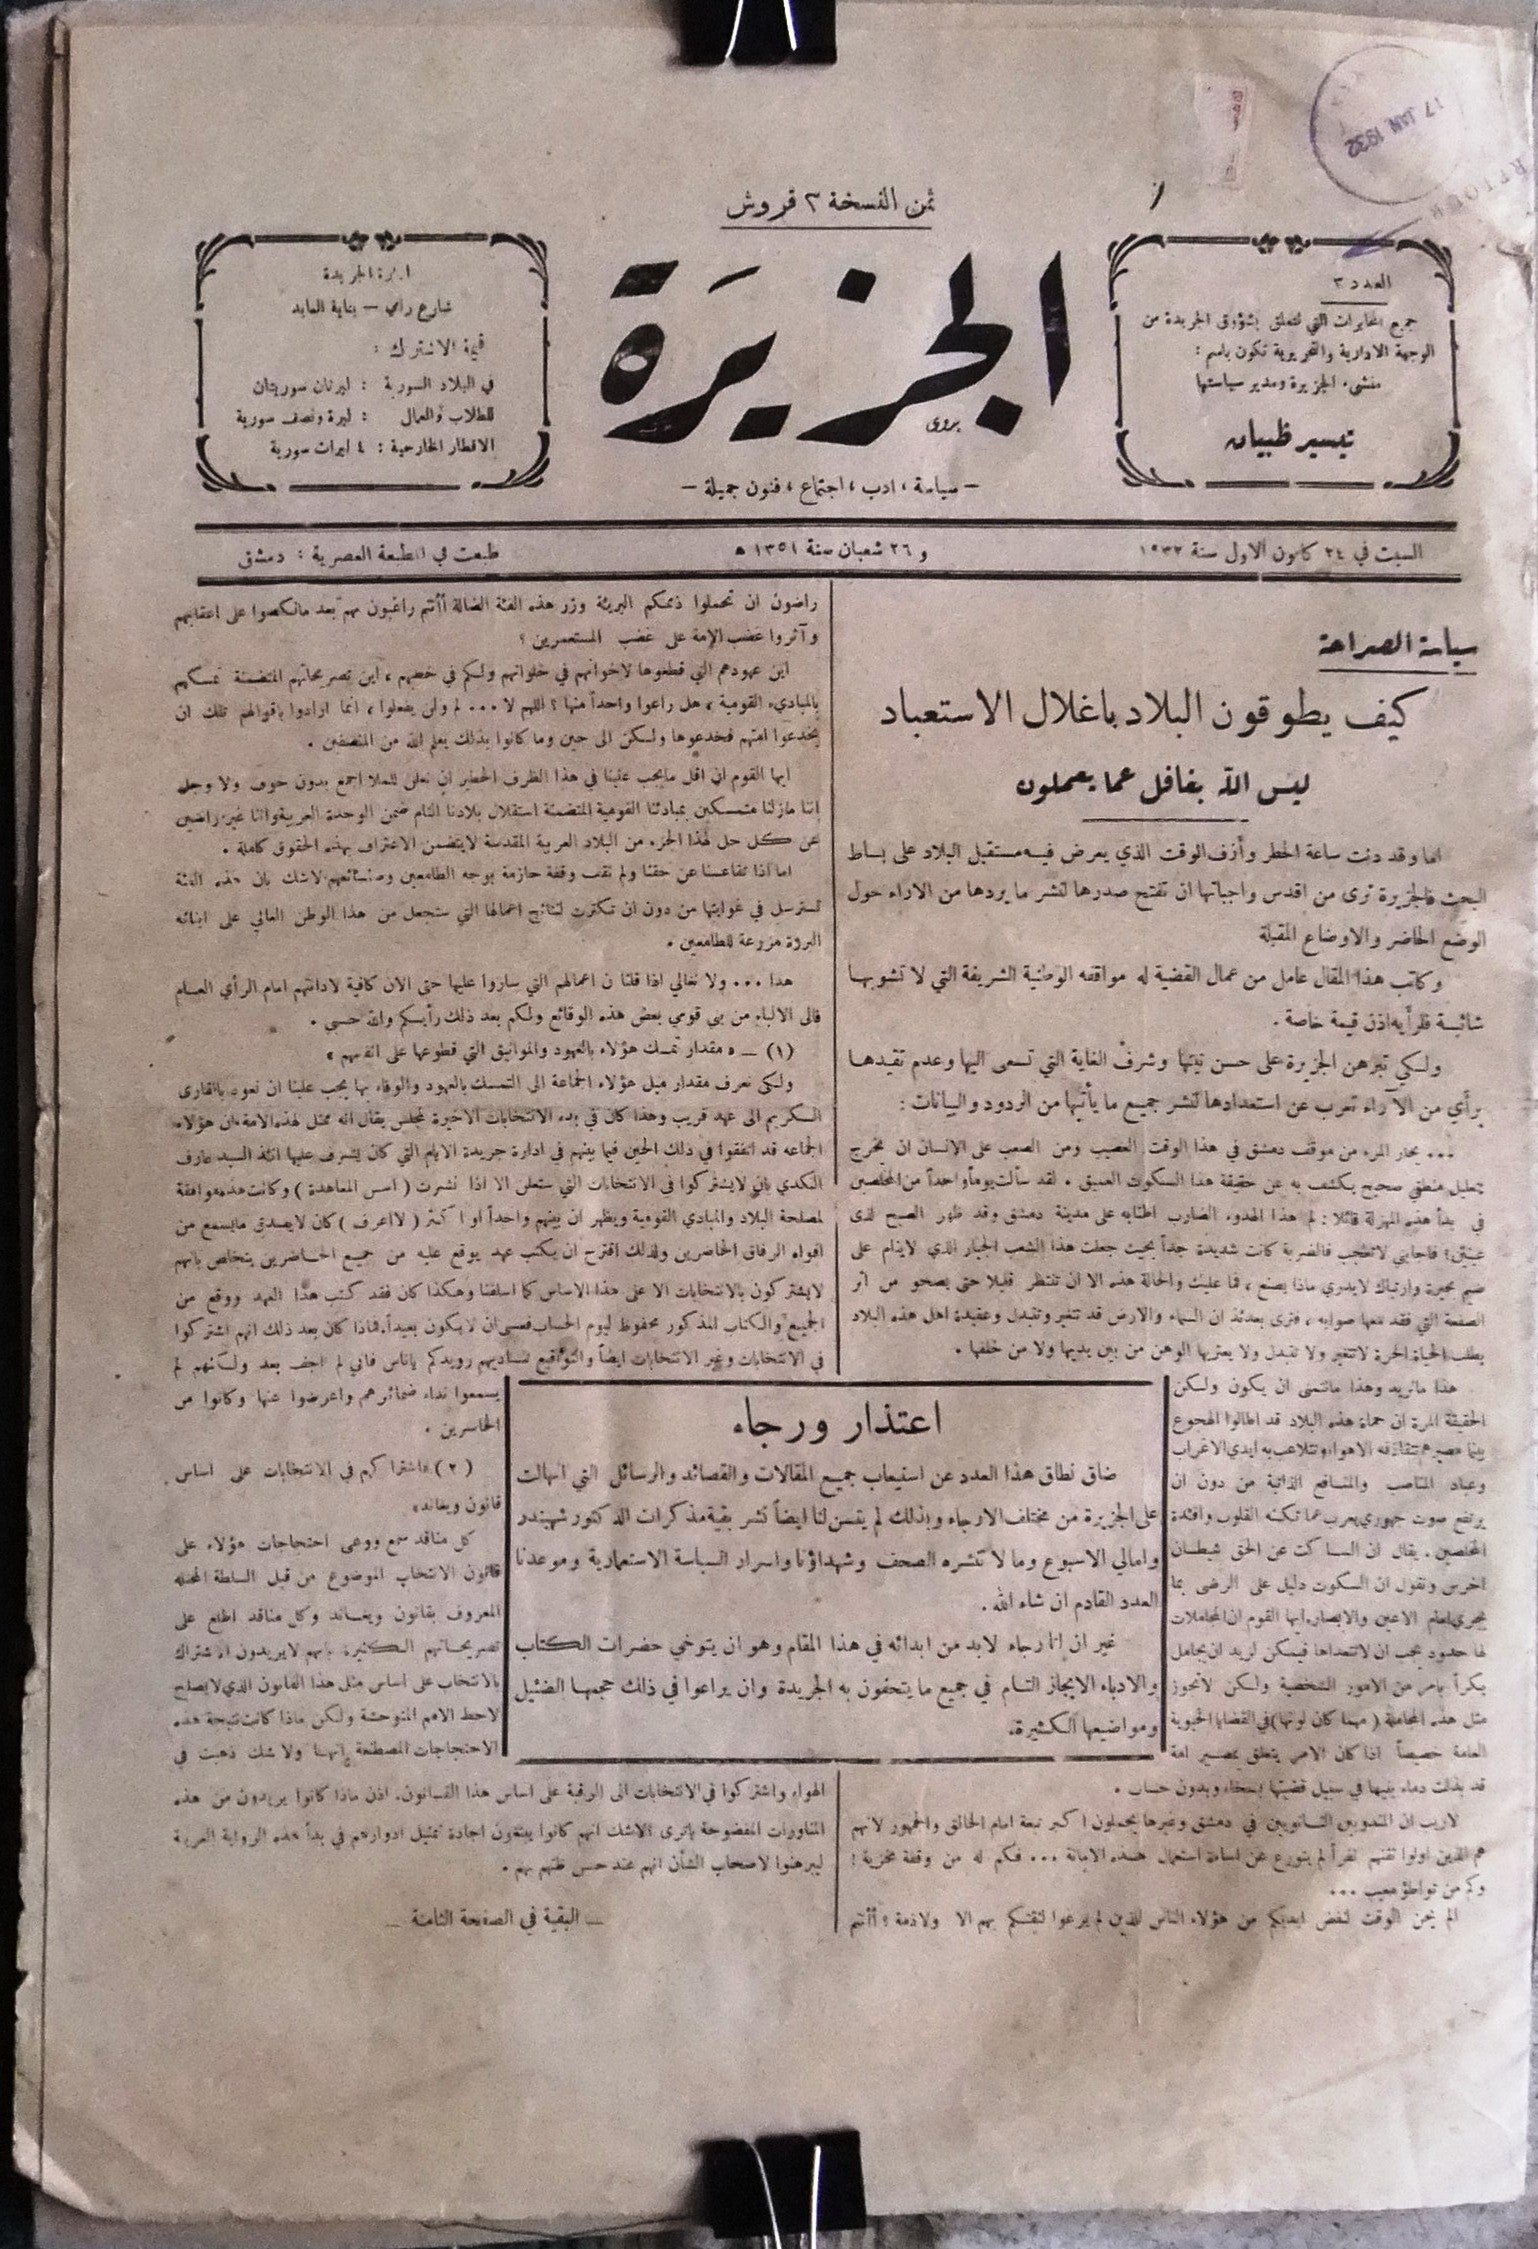 17 JAN 1932
ثمن النسخة ٣ قروش
العدد ٣
جميع المخابرات التي تتعلق بشؤون الجريدة من
الوجهة الادارية والتحريرية تكون باسم :
منشىء الجزيرة ومدير سياستها
تيسير ظبيان
الجزيرة
– سياسة ، ادب ، اجتماع ، فنون جميلة –
الجريدة
شارع رامي – بناية العابد
قيمة الاشتراك :
في البلاد السورية : ليرتان سوريتان
للطلاب والعمال : ليرة ونصف سورية
الاقطار الخارجية : ٤ ليرات سورية
السبت في ٢٤ كانون الاول سنة ١٩٣٢
و ٢٦ شعبان سنة ١٣٥١ ه
طبعت في المطبعة العصرية : دمشق
سياسة الصراحة
كيف يطوقون البلاد باغلال الاستعباد
ليس الله بغافل عما يعملون
اما وقد دنت ساعة الخطر وأزف الوقت الذي يعرض فيه مستقبل البلاد على بساط
البحث فالجزيرة ترى من اقدس واجباتها ان تفتح صدرها لنشر ما يردها من الاراء حول
الوضع الحاضر والاوضاع المقبلة
وكاتب هذا المقال عامل من عمال القضية له مواقفه الوطنية الشريفة التي لا تشوبها
شائبة فلرأيه اذن قيمة خاصة .
ولكي تبرهن الجزيرة على حسن نيتها وشرف الغاية التي تسعى اليها وعدم تقيدها
برأي من الآراء تعرب عن استعدادها لنشر جميع ما يأتيها من الردود والبيانات :
... يحار المرء من موقف دمشق في هذا الوقت العصيب ومن الصعب على الانسان ان يخرج
بتعليل منطقي صحيح يكشف به عن حقيقة هذا السكوت العميق . لقد سألت يوماً واحداً من المخلصين
في بدأ هذه المهزلة قائلا : لم هذا الهدوء الضارب اطنابه على مدينة دمشق وقد ظهر الصبح لذى
عينين؛ فاجابني لا تعجب فالضربة كانت شديدة جداً بحيث جعلت هذا الشعب الجبار الذي لا ينام على
ضيم بحيرة وارتباك لا يدري ماذا يصنع ، فما عليك والحالة هذه الا ان تنتظر قليلا حتى يصحو من أثر
الصفعة التي فقد معها صوابه ، فترى بعدئذ ان السماء والارض قد تتغير وتتبدل وعقيدة اهل هذه البلاد
بطلب الحياة الحرة لا تتغير ولا تتبدل ولا يعتريها الوهن من بين يديها ولا من خلفها .
هذا ما نريد وهذا ما نتمنى ان يكون ولكن
الحقيقة المرة ان حماة هذه البلاد قد اطالوا الهجوع
بينما مصيرهم تتقاذفه الاهواء وتتلاعب به أيدي الاغراب
وعباد المناصب والمنافع الذاتية من دون ان
يرتفع صوت جهوري يعرب عما تكنه القلوب وافئدة
المخلصين . يقال ان الساكت عن الحق شيطان
اخرس ونقول ان السكوت دليل على الرضى بما
يجري امام الاعين والابصار. ايها القوم ان المجاملات
لها حدود يجب ان لا نتعداها فيمكن لزيد ان يجامل
بكراً بأمر من الامور الشخصية ولكن لا تجوز
مثل هذه المجاملة ( مهما كان لونها) في القضايا الحيوية
العامة خصيصاً اذا كان الامر يتعلق بمصير امة
قد بذلت دماء بنيها في سبيل قضيتها بسخاء وبدون حساب .
لاريب ان المندوبين الثانويين في دمشق وغيرها يحملون اكبر تبعة امام الخالق والجمهور لانهم
هم الذين اولوا ثقتهم نفراً لم يتورع عن اساءة استعمال هذه الامانة ... فكم له من وقفة مخزية !
وكم من تواطؤ معيب ...
الم يحن الوقت لنفض ايديكم من هؤلاء الناس الذين لم يرعوا لثقتكم بهم الا ولا ذمة ؟ أأنتم
راضون ان تحملوا ذممكم البريئة وزر هذه الفئة الضالة أأنتم راغبون بهم بعد مانكصوا على اعقابهم
وآثروا غضب الامة على غضب المستعمرين ؟
اين عهودهم التي قطعوها لاخوانهم في خلواتهم ولكم في خطبهم ، اين تصريحاتهم المتضمنة تمسكهم
بالمبادىء القومية ، هل راعوا واحداً منها ؟ اللهم لا ... لم ولن يفعلوا ، انما ارادوا باقوالهم تلك ان
يخدعوا امتهم فخدعوها ولكن الى حين وما كانوا بذلك يعلم الله من المنصفين .
ايها القوم ان اقل مايجب علينا في هذا الظرف الخطير ان نعلن للملا اجمع بدون خوف ولا وجل
اننا مازلنا متمسكين بمبادئنا القومية المتضمنة استقلال بلادنا التام ضمن الوحدة العربية واننا غير راضين
عن كل حل لهذا الجزء من البلاد العربية المقدسة لا يتضمن الاعتراف بهذه الحقوق كاملة .
اما اذا تقاعسنا عن حقنا ولم نقف وقفة حازمة بوجه الطامعين وصنائعهم لاشك بان هذه الفئة
تسترسل في غوايتها من دون ان تكترث لنتائج اعمالها التي ستجعل من هذا الوطن الغالي على ابنائه
البررة مزرعة للطامعين .
هذا ... ولا نغالي اذا قلنا ان اعمالهم التي ساروا عليها حتى الان كافية لادانتهم امام الرأي العام
فالى الالباء من بني قومي بعض هذه الوقائع ولكم بعد ذلك رأيكم والله حسبي .
(١) – « مقدار تمسك هؤلاء بالعهود والمواثيق التي قطعوها على انفسهم »
ولكي نعرف مقدار ميل هؤلاء الجماعة الى التمسك بالعهود والوفاء بها يجب علينا ان نعود بالقارى
الكريم الى عهد قريب وهذا كان في بدء الانتخابات الاخيرة لمجلس يقال انه ممثل لهذه الامة، ان هؤلاء
الجماعه قد اتفقوا في ذلك الحين فيما بينهم في ادارة جريدة الايام التي كان يشرف عليها انئذ السيد عارف
النكدي بان لا يشتركوا في الانتخابات التي ستعلن الا اذا نشرت ( اسس المعاهدة ) وكانت هذه موافقة
لمصلحة البلاد والمبادي القومية ويظهر ان بينهم واحداً او اكثر ( لا اعرف ) كان لا يصدق مايسمع من
افواه الرفاق الحاضرين ولذلك اقترح ان يكتب عهد يوقع عليه من جميع الحاضرين يتخلص بانهم
لا يشتركون بالانتخابات الا على هذا الاساس كما اسلفنا وهكذا كان فقد كتب هذا العهد ووقع من
الجميع والكتاب المذكور محفوظ ليوم الحساب فعسى ان لا يكون بعيداً. فماذا كان بعد ذلك انهم اشتركوا
في الانتخابات وغير الانتخابات ايضاً والتواقيع تناديهم رويدكم يا ناس فاني لم اجف بعد ولكنهم لم
يسمعوا نداء ضمائرهم واعرضوا عنها وكانوا من
الخاسرين .
(٢) « اشتراكهم في الانتخابات على اساس
قانون ويغاند»
كل منا قد سمع ووعى احتجاجات هؤلاء على
قانون الانتخاب الموضوع من قبل السلطة المحتلة
المعروف بقانون ويغاند وكل منا قد اطلع على
تصريحاتهم الكثيرة بانهم لا يريدون الاشتراك
بالانتخاب على اساس مثل هذا القانون الذي لا يصلح
لاحط الامم المتوحشة ولكن ماذا كانت نتيجة هذه
الاحتجاجات المصطنعة انها ولا شك ذهبت في
الهواء واشتركوا في الانتخابات الى الرقبة على اساس هذا القانون. اذن ماذا كانوا يريدون من هذه
المناورات المفضوحة ياترى ؟ لاشك انهم كانوا يبتغون اجادة تمثيل ادوارهم في بدأ هذه الرواية العربية
ليبرهنوا لاصحاب الشأن انهم عند حسن ظنهم بهم .
– البقية في الصفحة الثامنة –
اعتذار ورجاء
ضاق نطاق هذا العدد عن استيعاب جميع المقالات والقصائد والرسائل التي انهالت
على الجزيرة من مختلف الارجاء وبذلك لم يتسن لنا ايضاً نشر بقية مذكرات الدكتور شهبندر
وامالي الاسبوع وما لا تنشره الصحف وشهداؤنا واسرار السياسة الاستعمارية وموعدنا
العدد القادم ان شاء الله .
غير ان لنا رجاء لابد من ابدائه في هذا المقام وهو ان يتوخى حضرات الكتاب
والادباء الايجاز التام في جميع ما يتحفون به الجريدة وان يراعوا في ذلك حجمها الضئيل
ومواضيعها الكثيرة.